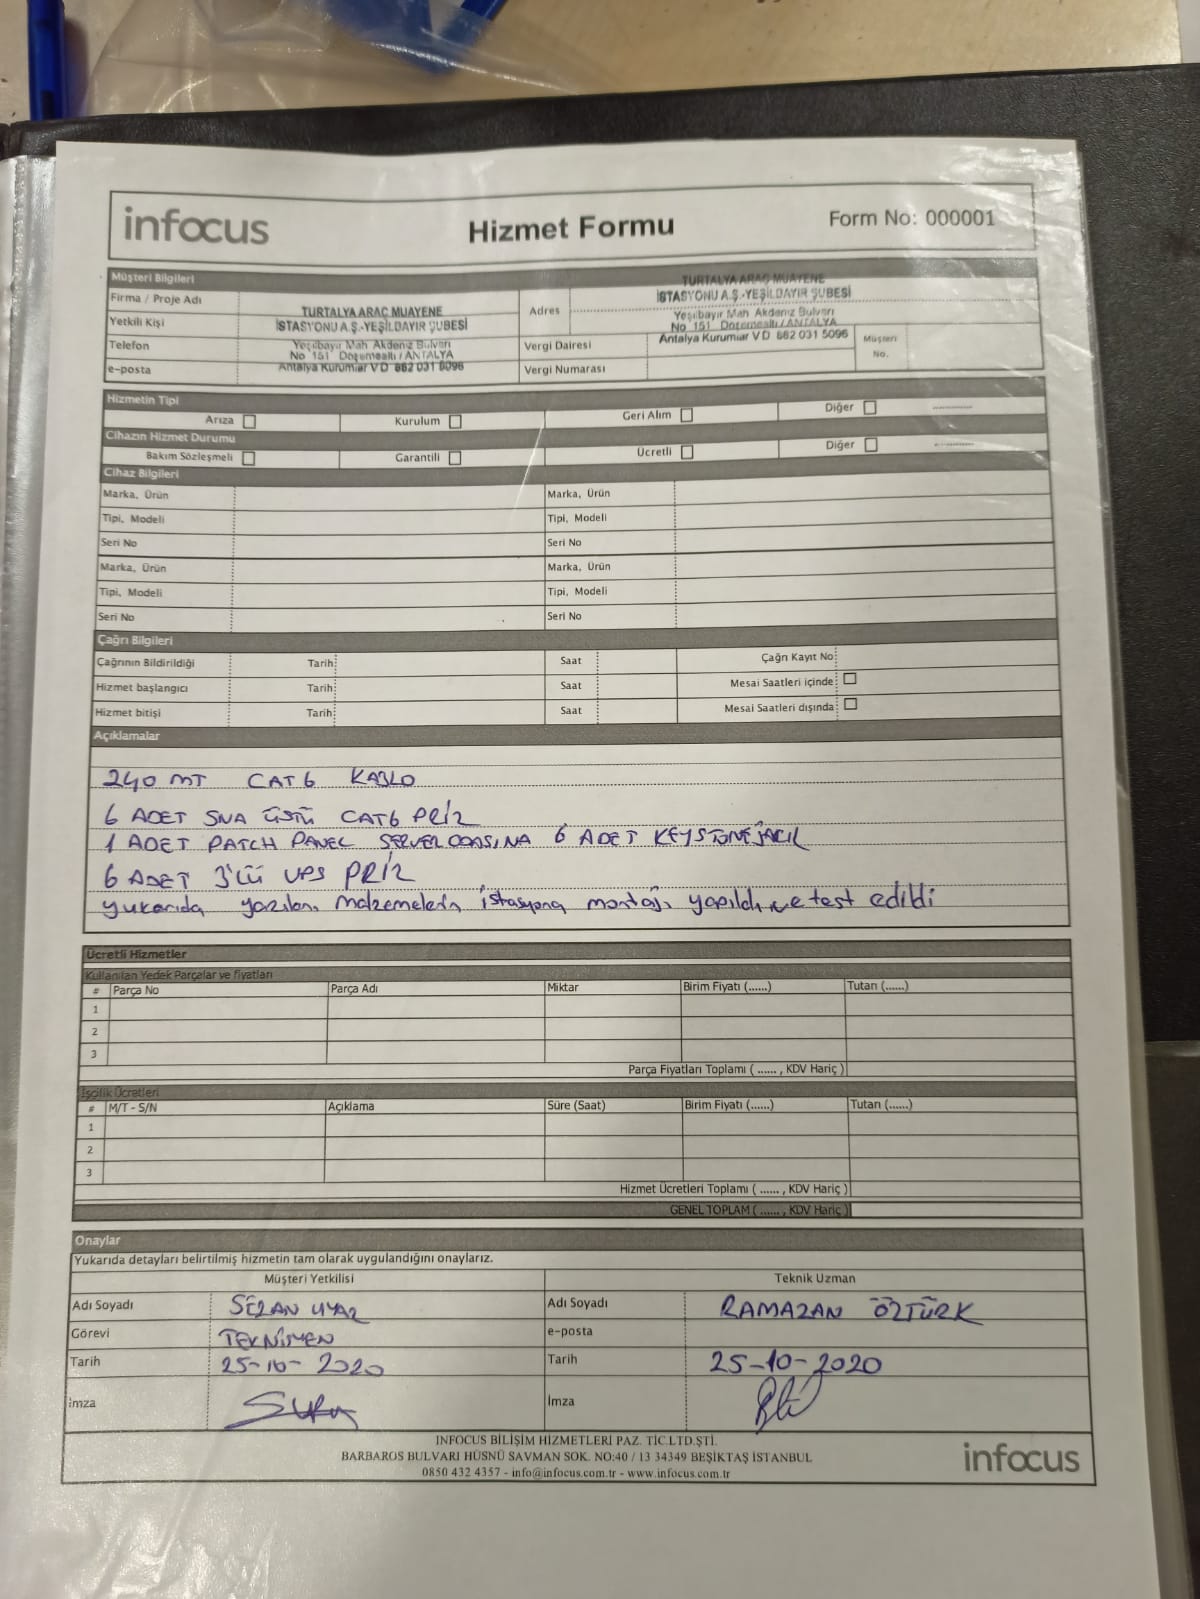 infocus
Hizmet Formu
Form No: 000001
Müşteri Bilgileri
Firma / Proje Adı
Yetkili Kişi
Telefon
e-posta
TURTALYA ARAÇ MUAYENE
İSTASYONU A.Ş.-YEŞİLBAYIR ŞUBESİ
Yeşilbayır Mah Akdeniz Bulvarı
No 151 Döşemealtı / ANTALYA
Antalya Kurumlar V D 662 031 5096
Adres
Vergi Dairesi
Vergi Numarası
TURTALYA ARAÇ MUAYENE
İSTASYONU A.Ş.-YEŞİLBAYIR ŞUBESİ
Yeşilbayır Mah Akdeniz Bulvarı
No 151 Döşemealtı / ANTALYA
Antalya Kurumlar V D 662 031 5096
Müşteri
No.
Hizmetin Tipi
Arıza Kurulum Geri Alım Diğer
Cihazın Hizmet Durumu
Bakım Sözleşmeli Garantili Ücretli Diğer
Cihaz Bilgileri
Marka, Ürün Marka, Ürün
Tipi, Modeli Tipi, Modeli
Seri No Seri No
Marka, Ürün Marka, Ürün
Tipi, Modeli Tipi, Modeli
Seri No Seri No
Çağrı Bilgileri
Çağrının Bildirildiği Tarih: Saat Çağrı Kayıt No:
Hizmet başlangıcı Tarih: Saat Mesai Saatleri içinde:
Hizmet bitişi Tarih: Saat Mesai Saatleri dışında:
Açıklamalar
240 MT CAT6 KABLO
6 ADET SIVA ÜSTÜ CAT6 PRİZ
1 ADET PATCH PANEL SERVER ODASINA 6 ADET KEYSTONE JACK
6 ADET 3'LÜ UPS PRİZ
yukarıda yazılan malzemelerin istasyona montajı yapıldı ve test edildi
Ücretli Hizmetler
Kullanılan Yedek Parçalar ve fiyatları
# Parça No Parça Adı Miktar Birim Fiyatı (......) Tutarı (......)
1
2
3
Parça Fiyatları Toplamı ( ...... , KDV Hariç )
İşçilik Ücretleri
# M/T - S/N Açıklama Süre (Saat) Birim Fiyatı (......) Tutarı (......)
1
2
3
Hizmet Ücretleri Toplamı ( ...... , KDV Hariç )
GENEL TOPLAM ( ...... , KDV Hariç )
Onaylar
Yukarıda detayları belirtilmiş hizmetin tam olarak uygulandığını onaylarız.
Müşteri Yetkilisi Teknik Uzman
Adı Soyadı UYAR Adı Soyadı RAMAZAN ÖZTÜRK
Görevi TEKNİSYEN e-posta
Tarih 25-10-2020 Tarih 25-10-2020
İmza İmza
INFOCUS BİLİŞİM HİZMETLERİ PAZ. TİC.LTD.ŞTİ.
BARBAROS BULVARI HÜSNÜ SAVMAN SOK. NO:40 / 13 34349 BEŞİKTAŞ İSTANBUL
0850 432 4357 - info@infocus.com.tr - www.infocus.com.tr
infocus